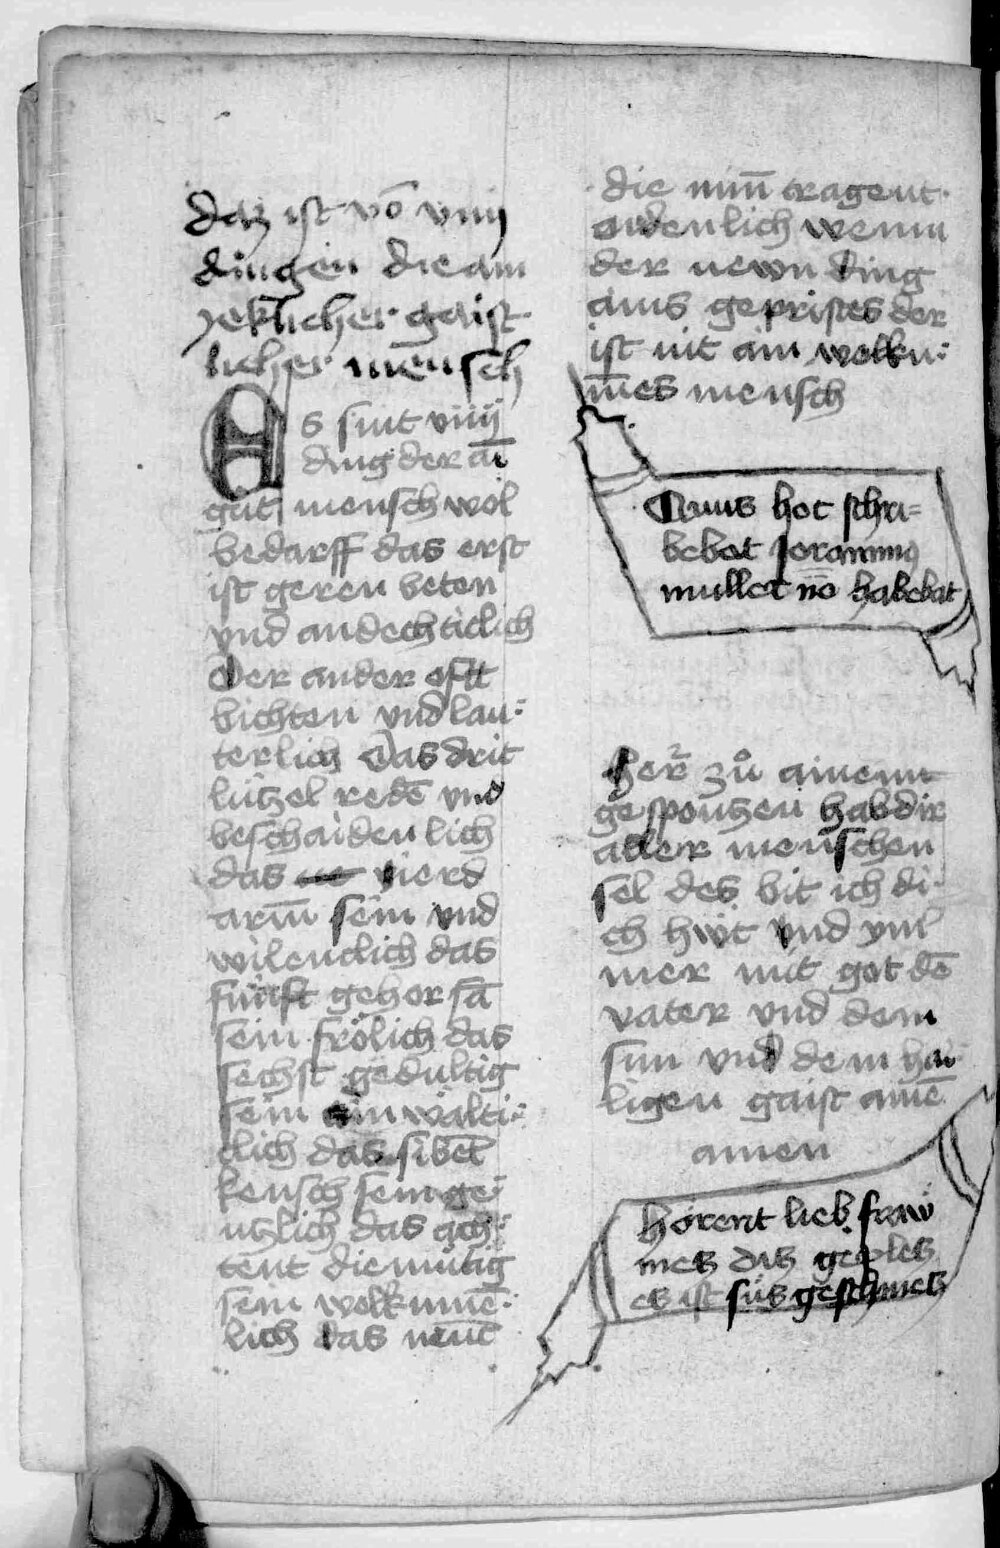 daz ist vō viiij
dingen die ain
yeklicher gaist
licher mensch
Es sint viiij
ding der aī
gůt mensch wol
bedarff das erst
ist geren beten
vnd andechticlich
Der ander offt
bichten vnd lau-
terlich Das drit
lützel redē vnd
beschaidenlich
das vierd
arm sein vnd
wilenclich das
fünft gehorsā
sein frölich das
sechst gedultig
sein ainwalti-
clich das sibēt
keusch sein ge-
ntzlich das ach-
tent diemütig
sein wolkumē-
lich das neūt
die minn tragent
ordenlich wenn
der newn ding
ains gepristes der
ist nit ain wolku-
m̄es mensch
Qauis hoc schri-
bebat Joranimus
muller nō habebat
Her zů ainem
gespontzen hab dir
aller menschen
sel des bit ich di-
ch hẅt vnd ym̄
mer mit got dē
vater vnd dem
sun vnd dem hai-
ligen gaist amē
amen
hörent lieb fraw
mes das geples
es ist süs geschmes